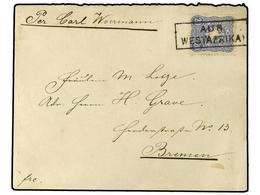 Per Carl Woermann
AUS
WESTAFRIKA
Fräulein M. Lotze.
Adr. Herrn H. Grave.
No 13.
Bremen
frc.